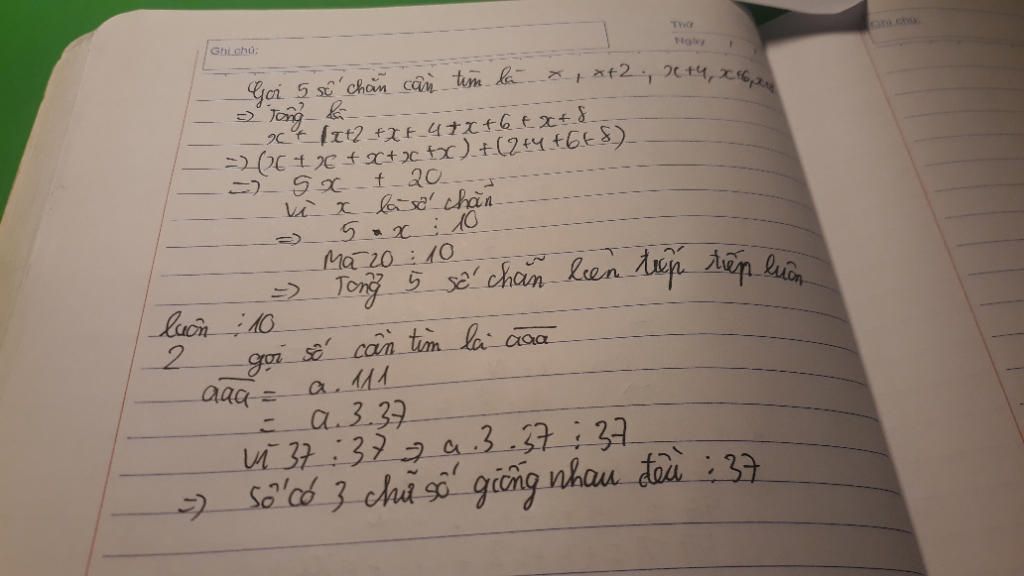 Ghi chú:
Thứ
Ngày
Ghi chú:
Gọi 5 số chẵn cần tìm là x, x+2, x+4, x+6, x+8
=> Tổng là
x + x+2 +x+ 4+x+6 + x+8
=> (x + x + x+x+x) + (2+4+6+8)
=> 5x + 20
Vì x là số chẵn
=> 5 . x ⋮ 10
Mà 20 ⋮ 10
=> Tổng 5 số chẵn liên tiếp tiếp luôn
luôn ⋮ 10
2 gọi số cần tìm là aaa
aaa = a . 111
= a . 3 . 37
Vì 37 ⋮ 37 => a . 3 . 37 ⋮ 37
=> Số có 3 chữ số giống nhau đều ⋮ 37